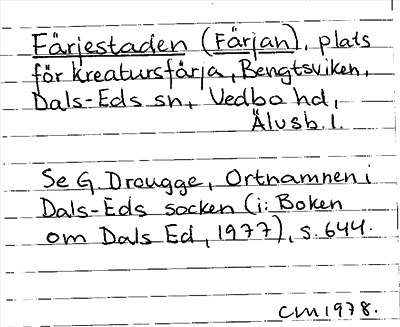 Färjestaden (Färjan), plats
för kreatursfärja, Bengtsviken,
Dals-Eds sn, Vedbo hd,
Älvsb. l.
Se G. Drougge, Ortnamnen i
Dals-Eds socken (i: Boken
om Dals Ed, 1977), s. 644.
CM 1978.